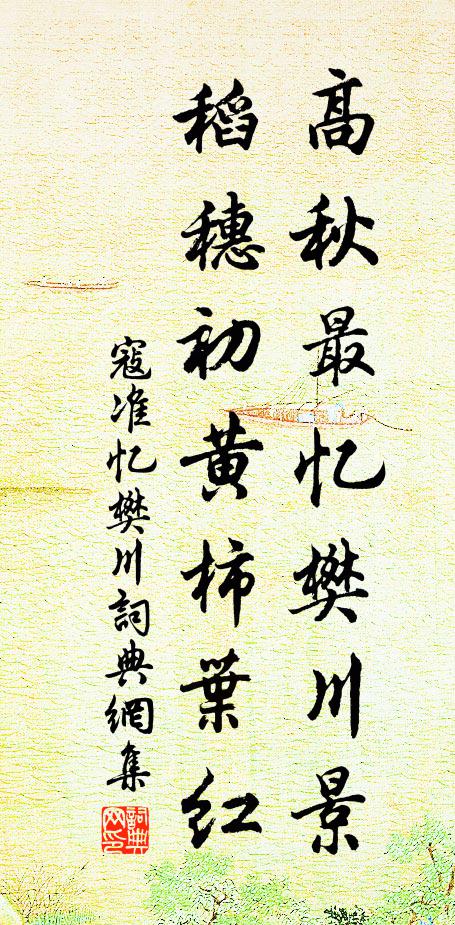 高秋最忆樊川景
稻穗初黄柿葉红
寇准忆樊川詞典網集
詞典网印